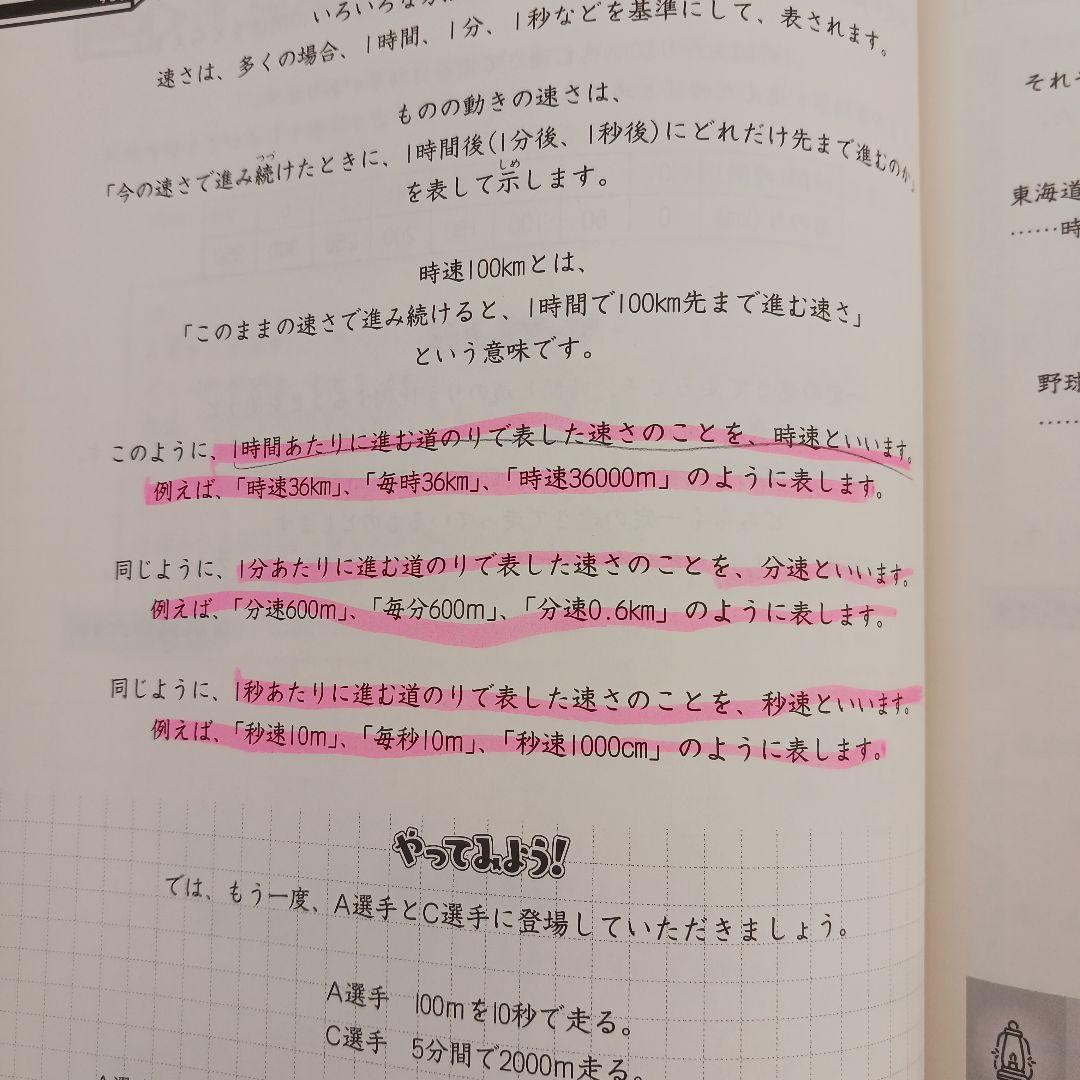 いろいろな
速さは、多くの場合、1時間、1分、1秒などを基準にして、表されます。
ものの動きの速さは、
「今の速さで進み続けたときに、1時間後(1分後、1秒後)にどれだけ先まで進むのか」
を表して示します。
時速100kmとは、
「このままの速さで進み続けると、1時間で100km先まで進む速さ」
という意味です。
このように、1時間あたりに進む道のりで表した速さのことを、時速といいます。
例えば、「時速36km」、「毎時36km」、「時速36000m」のように表します。
同じように、1分あたりに進む道のりで表した速さのことを、分速といいます。
例えば、「分速600m」、「毎分600m」、「分速0.6km」のように表します。
同じように、1秒あたりに進む道のりで表した速さのことを、秒速といいます。
例えば、「秒速10m」、「毎秒10m」、「秒速1000cm」のように表します。
やってみよう!
では、もう一度、A選手とC選手に登場していただきましょう。
A選手 100mを10秒で走る。
C選手 5分間で2000m走る。
それ
東海道
……時
野球
……